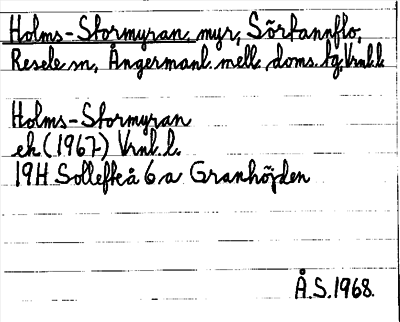 Holms-Stormyran myr, Sörtannflo,
Resele sn, Ångermanl. mell. doms. tg. Vrnl. l.
Holms-Stormyran
ek (1967) Vrnl. l.
19H Sollefteå 6a Granhöjden
Å.S.1968.